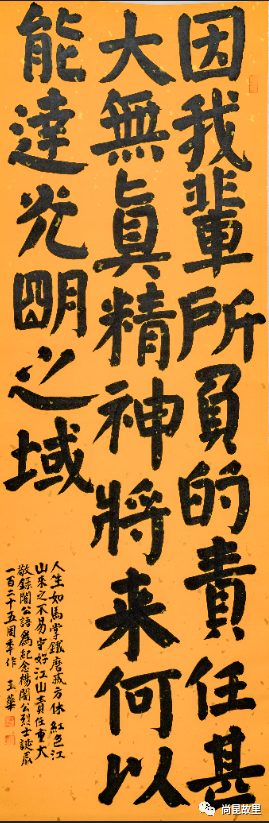 因我輩所負的責任甚
大無眞精神將来何以
能達光朙之域
人生如馬掌鐵磨滅方休紅色江
山来之不易守好江山責任重大
敬錄闇公語爲紀念楊闇公烈士誕辰
一百二十五周年作 玉華
尚昆故里